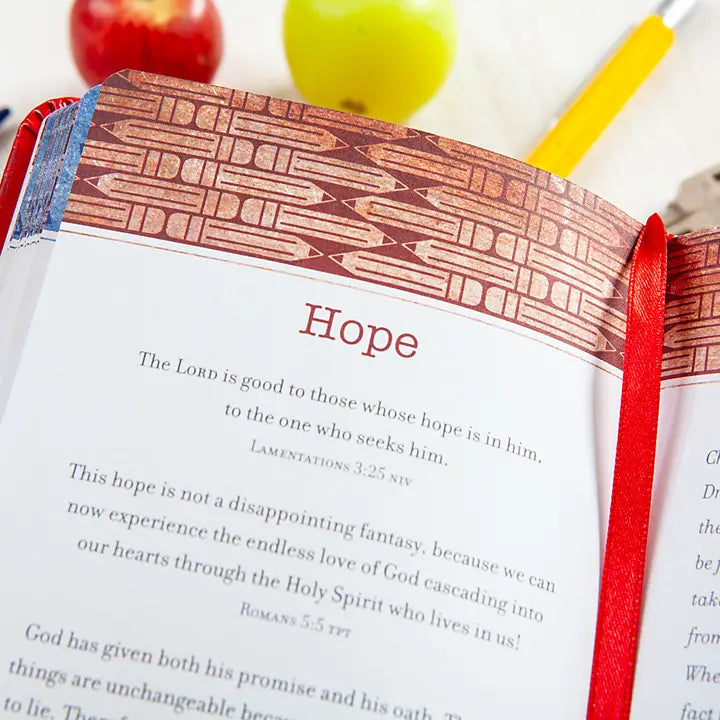 Hope
The LORD is good to those whose hope is in him,
to the one who seeks him.
LAMENTATIONS 3:25 NIV
This hope is not a disappointing fantasy, because we can
now experience the endless love of God cascading into
our hearts through the Holy Spirit who lives in us!
ROMANS 5:5 TPT
God has given both his promise and his oath.
things are unchangeable
to lie.
the
be
from
fact